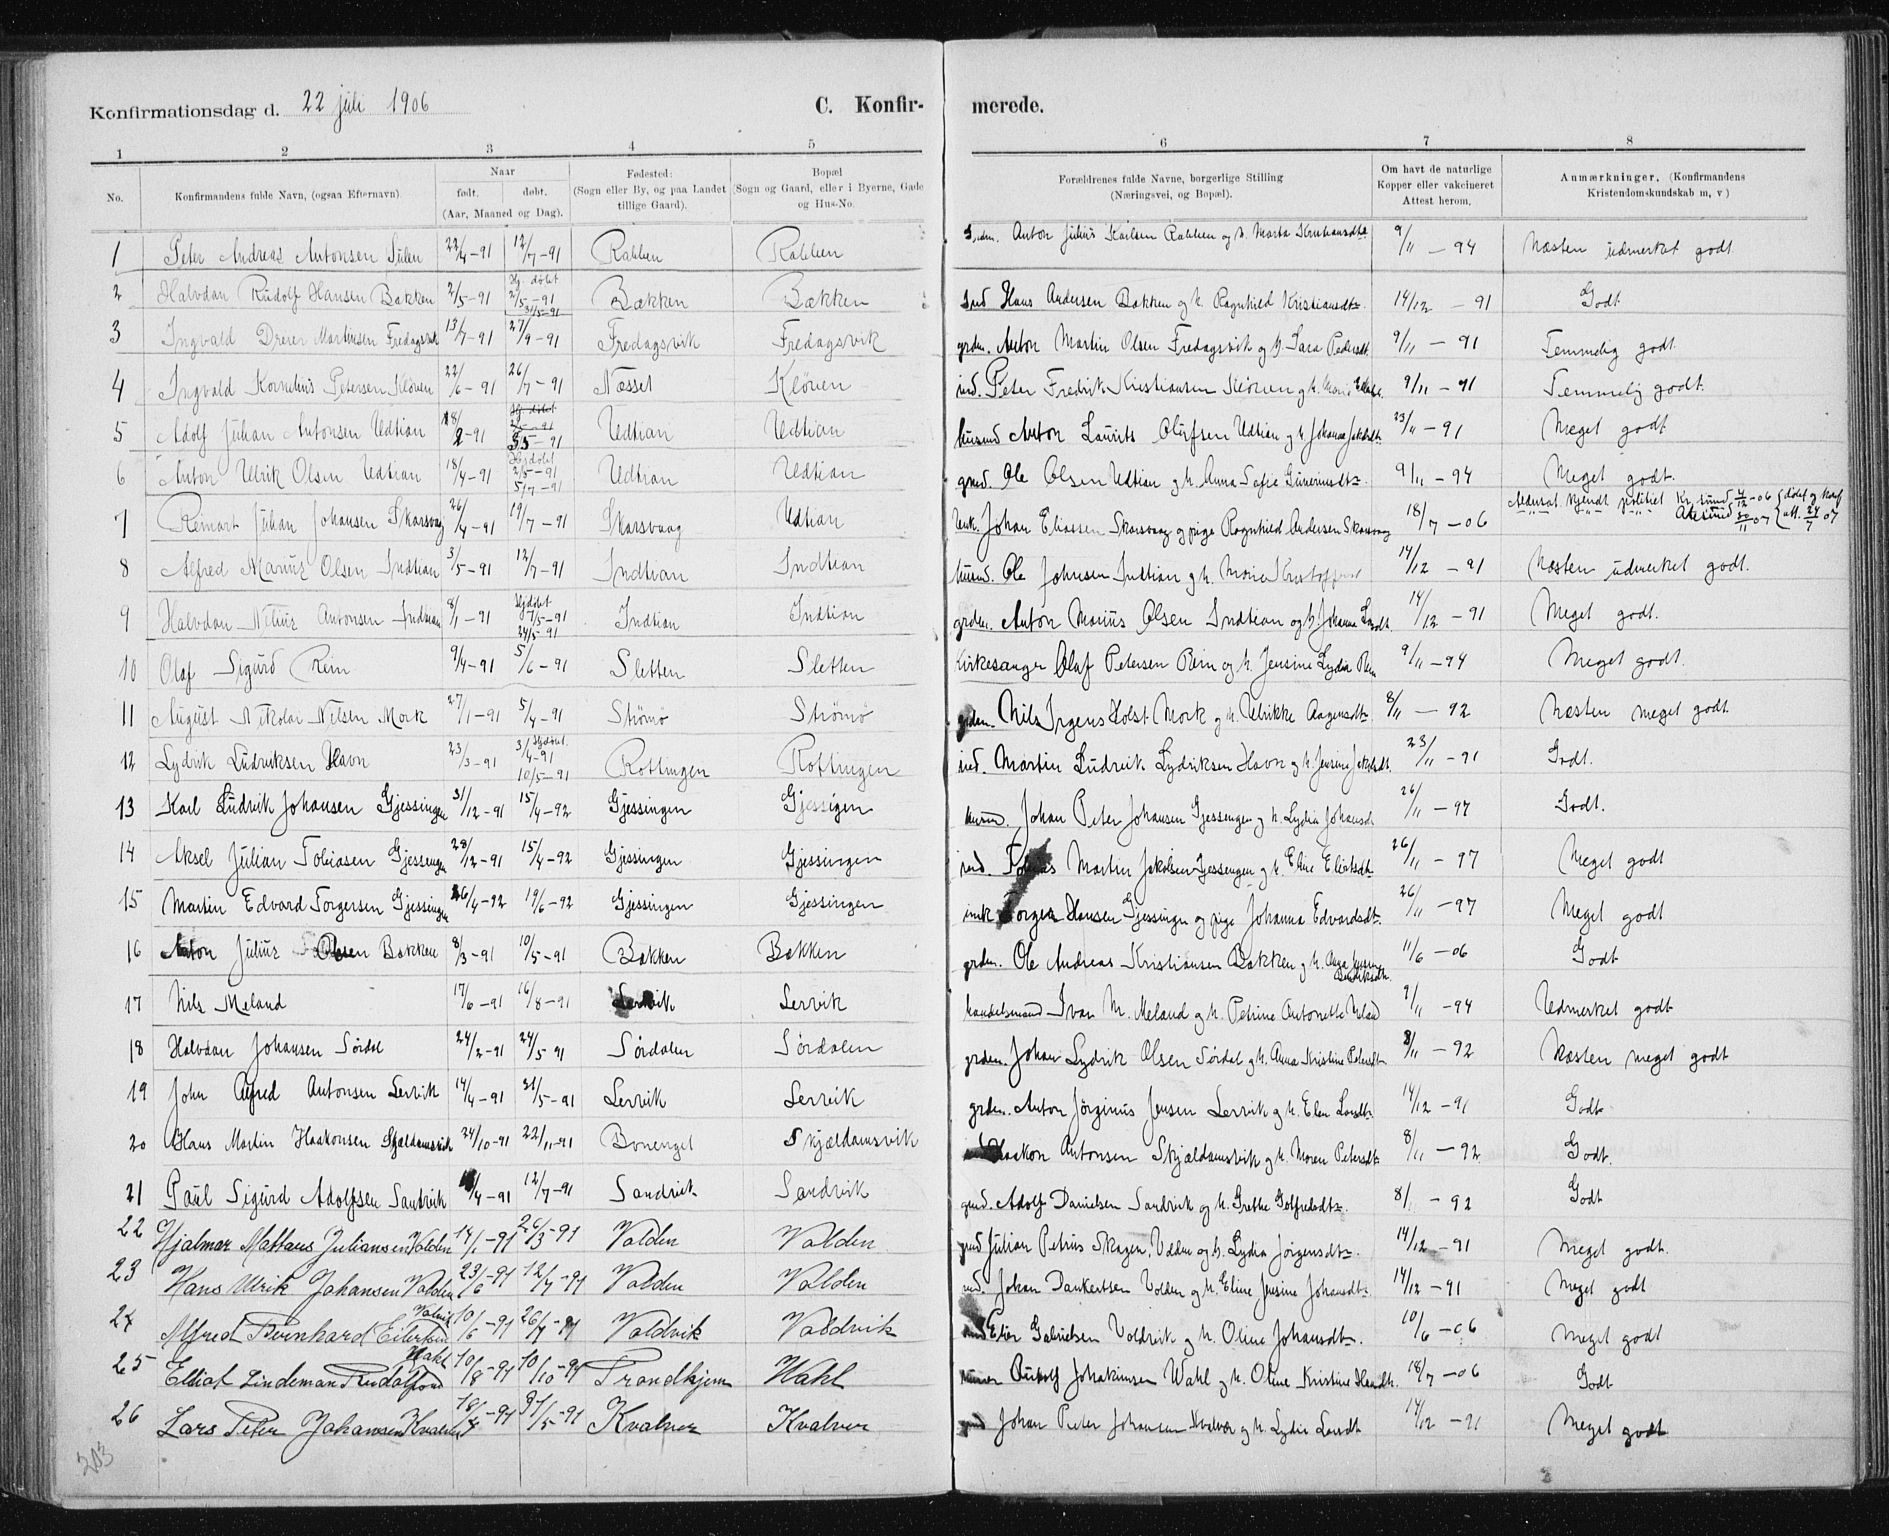 Konfirmationsdag d. 22 juli 1906 C. Konfir- merede.
1 2 3 4 5 6 7 8
No. Konfirmandens fulde Navn, (ogsaa Efternavn). Naar født. døbt. (Aar, Maaned og Dag). Fødested: (Sogn eller By, og paa Landet tillige Gaard). Bopæl (Sogn og Gaard, eller i Byerne, Gade og Hus-No. Forældrenes fulde Navne, borgerlige Stilling (Næringsvei, og Bopæl). Om havt de naturlige Kopper eller vakcineret Attest herom. Anmærkninger, (Konfirmandens Kristendomskundskab m, v)
1 Peter Andreas Antonsen Sulen 22/4-91 12/7-91 Rabben Rabben Anton Julius Karlsen Rabben og h. Marta Kristiansdtr 9/11 - 94 Næsten udmerket godt.
2 Halvdan Rudolf Hansen Bakken 2/5-91 Hj. døbt 2/5-91 31/5-91 Bakken Bakken ind Hans Andersen Bakken og h. Ragnhild Kristiansdtr. 14/12 - 91 Godt
3 Ingvald Dreier Martinsen Fredagsvik 13/7-91 27/9-91 Fredagsvik Fredagsvik grdm. Anton Martin Olsen Fredagsvik og h. Sara Pedersdt. 9/11 - 91 Temmelig godt
4 Ingvald Kornelius Petersen Kløven 22/6-91 26/7-91 Næsset Kløven ind. Peter Fredrik Kristiansen Kløven og h. 9/11 - 91 Temmelig godt.
5 Adolf Julian Antonsen Udtian 18/2-91 -91 Udtian Udtian husmd Anton Laurits Olufsen Udtian og h. Johanna Jakobsdt 23/11 - 91 Meget godt
6 Anton Ulrik Olsen Udtian 18/4-91 Hj døbt 2/5-91 5/7-91 Udtian Udtian gmd. Ole Olsen Udtian og h. Anna Sofie Guneriusdtr. 9/11 - 94 Meget godt.
7 Reinart Julian Johansen Skarsvaag 26/4-91 19/7-91 Skarsvaag Udtian Unk. Johan Eliassen Skarsvaag og pige Ragnhild Andersen Skarsvaag 18/7 - 06
8 Alfred Marius Olsen Indtian 3/5-91 12/7-91 Indtian Indtian husmd. Ole Johnsen Indtian og h. Maria 14/12 - 91 Næsten udmerket godt.
9 Halvdan Nelius Antonsen Indtian 8/1-91 Hj døbt 7/5-91 24/5-91 Indtian Indtian grdm. Anton Marius Olsen Indtian og h. Johanna Larsdt. 14/12 - 91 Meget godt.
10 Olaf Sigurd Rein 9/4-91 5/6-91 Sletten Sletten Kirkesanger Olaf Petersen Rein og h. Jensine Lydia Rein 9/11 - 94 Meget godt.
11 August Nikolai Nilsen Mork 27/1-91 5/4-91 Strømø Strømø grdm. Nils Irgens Holst Mork og h. Ulrikke Aagensdtr 8/11 - 92 Næsten meget godt.
12 Lydrik Ludviksen Havn 23/3-91 3/4-91 Hjdøbt. 10/5-91 Rottingen Rottingen ind. Martin Ludvik Lydriksen Havn og h. Jensine Jakobsdt. 23/11 - 91 Godt.
13 Karl Ludvik Johansen Gjessingen 31/12-91 15/4-92 Gjessingen Gjessigen husm. Johan Peter Johansen Gjessengen og h. Lydia Johansd. 26/11 - 97 Godt.
14 Aksel Julian Tobiasen Gjessengen 28/12-91 15/4-92 Gjessingen Gjessingen ind. Tobias Martin Jakobsen Gjessengen og h. Eline Eliasdt. 26/11 - 97 Meget godt
15 Martin Edvard Torgersen Gjessingen 26/4-92 19/6-92 Gjessingen Gjessingen unk Torger Hansen Gjessingen og pige Johanna Edvardsdtr. 26/11 - 97 Meget godt
16 Anton Julius Olsen Bakken 8/3-91 10/5-91 Bakken Bakken grdm. Ole Andreas Kristiansen Bakken og h. 11/6 - 06 Godt
17 Nils Meland 17/6-91 16/8-91 Lervik Lervik handelsmand Ivar M. Meland og h. Petrine Antonette Meland 9/11 - 94 Udmerket godt
18 Halvdan Johansen Sørdal 24/2-91 24/5 91 Sørdalen Sørdalen grdm. Johan Lydrik Olsen Sørdal og h. Anna Kristine Petersdt. 8/11 - 92 Næsten meget godt
19 John Alfred Antonsen Lervik 14/4-91 31/5-91 Lervik Lervik grdm. Anton Jørginus Jensen Lervik og h. Elen Larsdtr. 14/12 - 91 Godt
20 Hans Martin Haakonsen Skjældamsvik 24/10-91 22/11-91 Bonenget Skjældamsvik Haakon Antonsen Skjældamsvik og h. Maren Petersdtr. 8/11 - 92. Godt.
21 Paul Sigurd Adolfsen Sandvik /4-91 12/7-91 Sandvik Sandvik gmd. Adolf Danielsen Sandvik og h. Grethe Golfredsdtr. 8/11 - 92 Godt
22 Hjalmar Mattæus Juliansen Valden 14/1-91 26/3-91 Valden Valden gmd Julian Petrus Skagen, Volden og h. Lydia Jørgensdtr. 14/12 - 91 Meget godt.
23 Hans Ulrik Johansen Valden 23/6-91 12/7-91 Valden Valden ind. Johan Dankertsen Volden og h. Eline Jensine Johansdtr. 14/12 - 91 Meget godt
24 Alfred Bernhard Eilertsen Valvik 10/6-91 26/7-91 Valdvik Valdvik Gabrielsen Voldvik og h. Oline Johansdtr. 10/6 - 06 Meget godt
25 Elliot Lindeman Rudolfsen Wahl 10/8-91 10/10-91 Trondhjem Wahl Rudolf Johakimsen Wahl og h. Oline Kristine 18/7 - 06 Godt
26 Lars Peter Johansen Kvalver 18/4-91 31/5-91 Kvalver Kvalver gmd Johan Peter Johansen Kvalvær og h. Lydia Larsdt 14/12 - 91 Meget godt
203